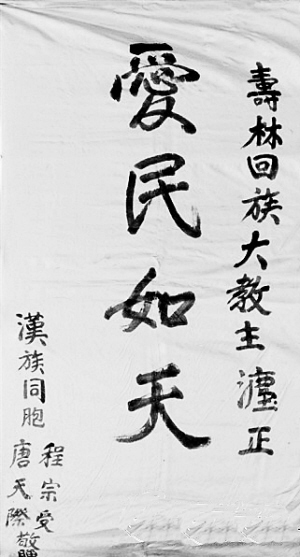 壽林回族大教主瀘正
愛民如天
漢族同胞
程宗受
唐天際敬贈